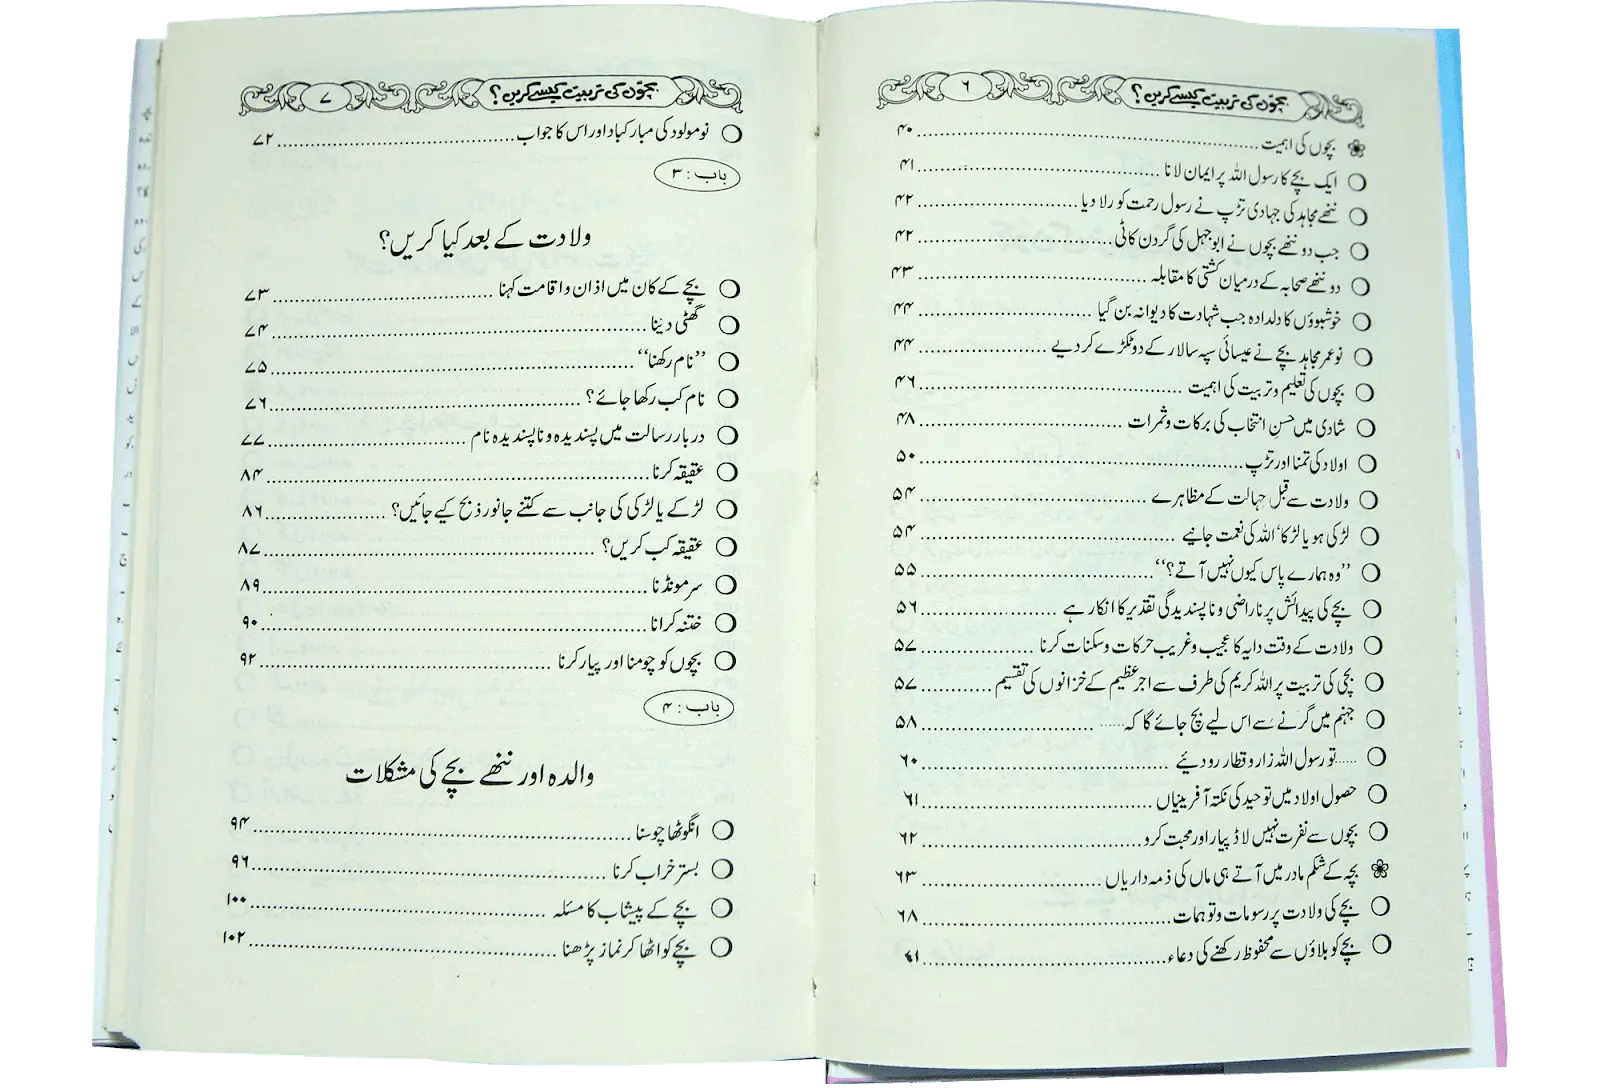 بچوں کی تربیت کیسے کریں؟ ۶
بچوں کی اہمیت ۴۰
ایک بچے کا رسول اللہ پر ایمان لانا ۴۱
ننھے مجاہد کی جہادی تڑپ نے رسول رحمت کو رلا دیا ۴۲
جب دو ننھے بچوں نے ابو جہل کی گردن کاٹی ۴۲
دو ننھے صحابہ کے درمیان کشتی کا مقابلہ ۴۳
خوشبوؤں کا دلدادہ جب شہادت کا دیوانہ بن گیا ۴۴
نو عمر مجاہد بچے نے عیسائی سپہ سالار کے دو ٹکڑے کر دیے ۴۴
بچوں کی تعلیم و تربیت کی اہمیت ۴۶
شادی میں حسنِ انتخاب کی برکات و ثمرات ۴۸
اولاد کی تمنا اور تڑپ ۵۰
ولادت سے قبل جہالت کے مظاہرے ۵۴
لڑکی ہو یا لڑکا، اللہ کی نعمت جانیے ۵۴
”وہ ہمارے پاس کیوں نہیں آتے؟“ ۵۵
بچے کی پیدائش پر ناراضی و ناپسندیدگی تقدیر کا انکار ہے ۵۶
ولادت کے وقت دایہ کا عجیب و غریب حرکات و سکنات کرنا ۵۷
بچی کی تربیت پر اللہ کریم کی طرف سے اجر عظیم کے خزانوں کی تقسیم ۵۷
جہنم میں گرنے سے اس لیے بچ جائے گا کہ...... ۵۸
......تو رسول اللہ زار و قطار رو دیئے ۶۰
حصول اولاد میں توحید کی نکتہ آفرینیاں ۶۱
بچوں سے نفرت نہیں لاڈ پیار اور محبت کرو ۶۲
بچہ کے شکم مادر میں آتے ہی ماں کی ذمہ داریاں ۶۳
بچے کی ولادت پر رسومات و توہمات ۶۸
بچے کو بلاؤں سے محفوظ رکھنے کی دعاء
بچوں کی تربیت کیسے کریں؟ ۷
نومولود کی مبارکباد اور اس کا جواب ۷۲
باب : ۳
ولادت کے بعد کیا کریں؟
بچے کے کان میں اذان و اقامت کہنا ۷۳
گھٹی دینا ۷۴
”نام رکھنا“ ۷۵
نام کب رکھا جائے؟ ۷۶
دربار رسالت میں پسندیدہ و ناپسندیدہ نام ۷۷
عقیقہ کرنا ۸۴
لڑکے یا لڑکی کی جانب سے کتنے جانور ذبح کیے جائیں؟ ۸۶
عقیقہ کب کریں؟ ۸۷
سر مونڈنا ۸۹
ختنہ کرانا ۹۰
بچوں کو چومنا اور پیار کرنا ۹۲
باب : ۴
والدہ اور ننھے بچے کی مشکلات
انگوٹھا چوسنا ۹۴
بستر خراب کرنا ۹۶
بچے کے پیشاب کا مسئلہ ۱۰۰
بچے کو اٹھا کر نماز پڑھنا ۱۰۲